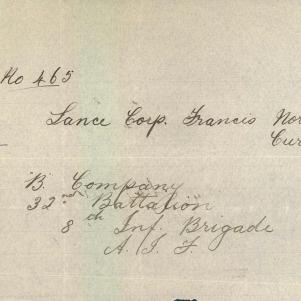 No 465
Lance Corp. Francis Nor
Cur
B. Company
32nd Battalion
8th Inf. Brigade
A. I. F.